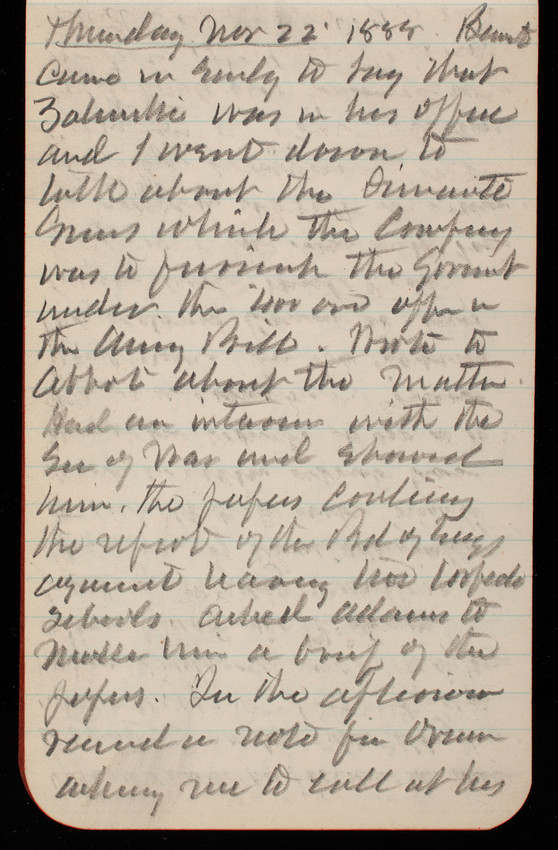 Thursday Nov 22 1888. Benét
came in early to say that
Zalinski was in his office
and I went down to
talk about the Dynamite
Guns which the Company
was to furnish the Govmt
under the 400 000 offer in
the Army Bill. Wrote to
Abbot about the matter.
Had an interview with the
Sec of War and showed
him the papers containg
the report of the Bd of Engs
against having two torpedo
schools. asked Adams to
make him a brief of the
papers. In the afternoon
received a note fm Drum
asking me to call at his